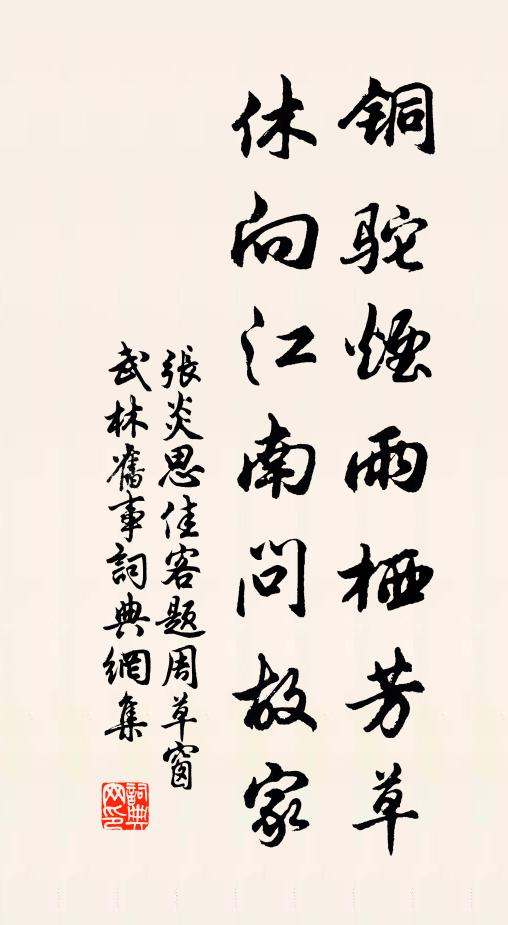 銅駝煙雨栖芳草
休向江南問故家
張炎思佳客題周草窗
武林舊事詞典網集
詞典网印